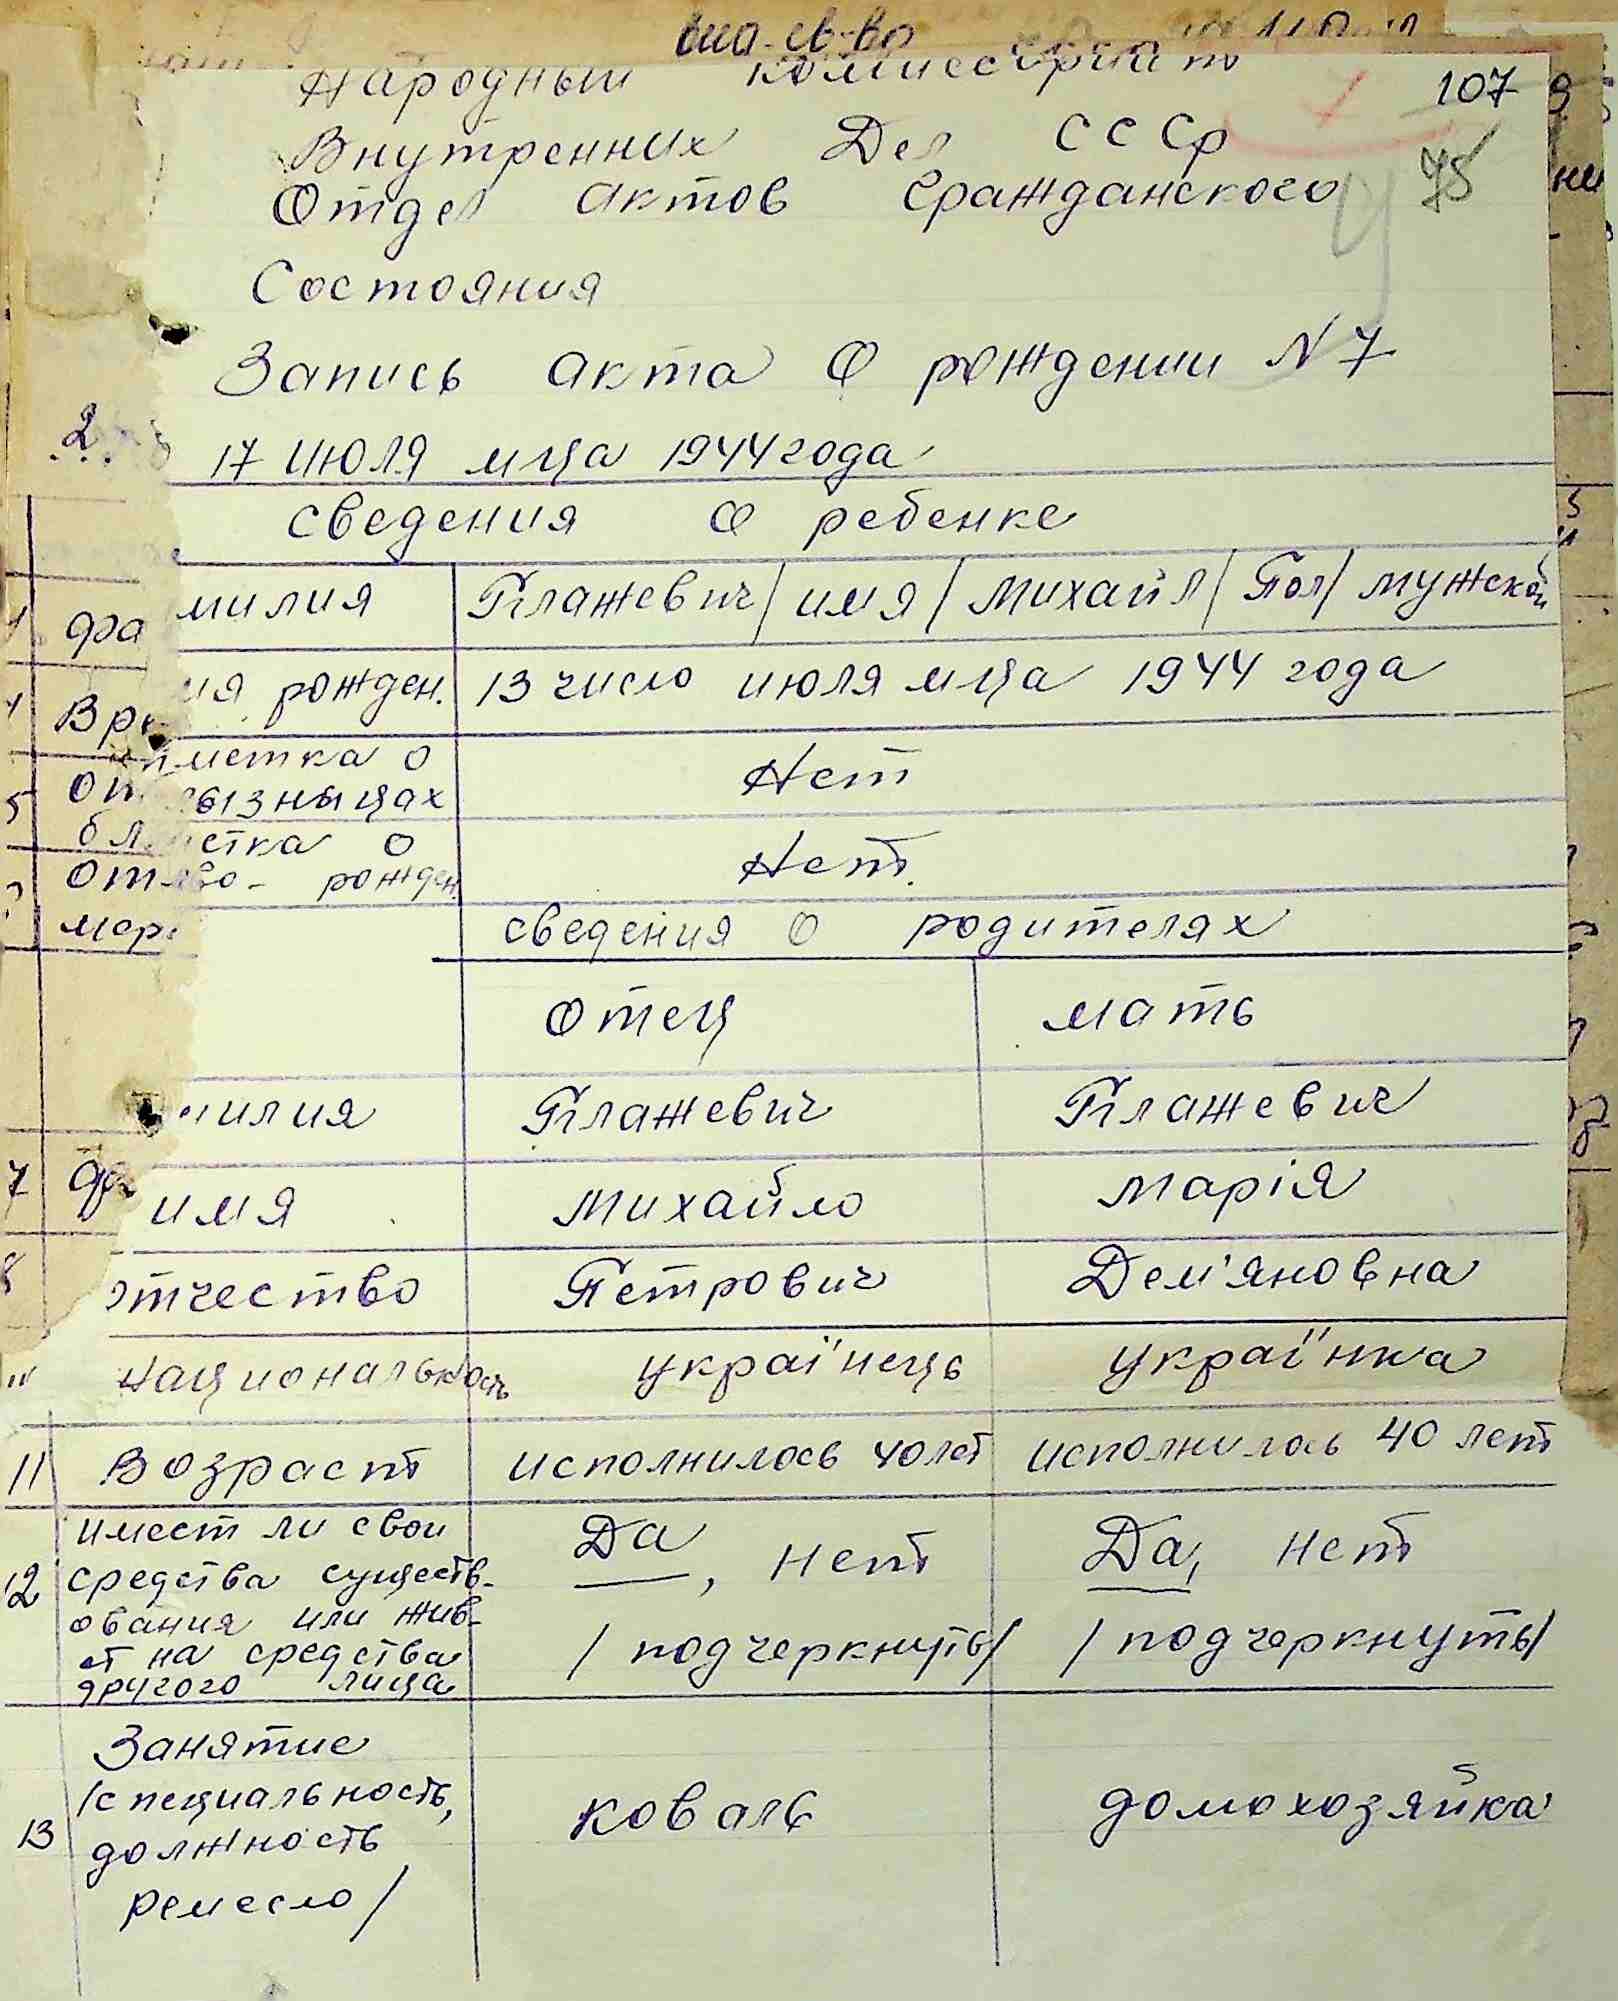 вид. св-во
Народный комиссариат
107
Внутренних Дел СССР
75
Отдел актов Гражданского
Состояния
Запись акта О рождении N 7
2
17 июля м-ца 1944 года
сведения О ребенке
фамилия Плажевич / имя / Михайл / Пол / мужской
Время рожден. 13 число июля м-ца 1944 года
Отметка о близницах Нет
Отметка о мертво-рожден. Нет.
сведения о родителях
Отец мать
7 Фамилия Плажевич Плажевич
8 имя Михайло Марія
отчество Петрович Дем'яновна
национальность українець українка
11 Возраст исполнилось 40 лет исполнилось 40 лет
12 имеет ли свои
средства существ-
ования или жив-
ет на средства
другого лица
Да, нет Да, нет
/ подчеркнуть / / подчеркнуть /
13 Занятие
/специальность,
должность
ремесло /
коваль домохозяйка